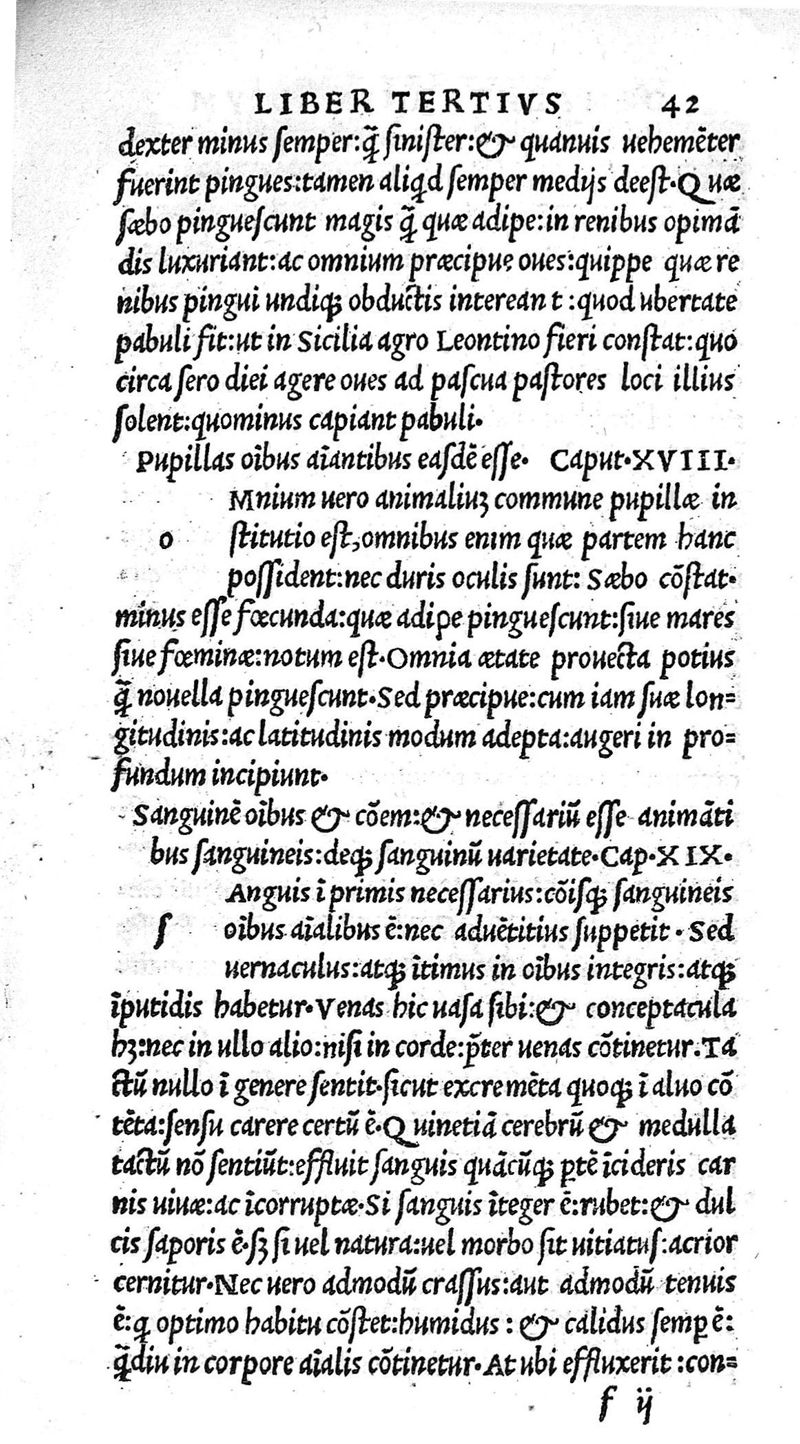 LIBER TERTIVS 42
dexter minus semper:q̃ sinister:& quanuis uehemẽter
fuerint pingues:tamen aliqd semper medijs deest.Quæ
sæbo pinguescunt magis q̃ quæ adipe:in renibus opimã
dis luxuriant:ac omnium præcipue oues:quippe quæ re
nibus pingui undiqꝫ obductis interean t:quod ubertate
pabuli fit:ut in Sicilia agro Leontino fieri constat:quo
circa sero diei agere oues ad pascua pastores loci illius
solent:quominus capiant pabuli.
Pupillas oĩbus aĩantibus easdẽ esse. Caput.XVIII.
Mnium uero animaliuꝫ commune pupillæ in
o stitutio est,omnibus enim quæ partem hanc
possident:nec duris oculis sunt: Sæbo cõstat.
minus esse fœcunda:quæ adipe pinguescunt:siue mares
siue fœminæ:notum est.Omnia ætate prouecta potius
q̃ nouella pinguescunt.Sed præcipue:cum iam suæ lon=
gitudinis:ac latitudinis modum adepta:augeri in pro=
fundum incipiunt.
Sanguinẽ oĩbus & cõem:& necessariũ esse animãti
bus sanguineis:deqꝫ sanguinũ uarietate.Cap.XIX.
Anguis ĩ primis necessarius:cõisqꝫ sanguineis
s oĩbus aĩalibus ẽ:nec aduẽtitius suppetit. Sed
uernaculus:atqꝫ ĩtimus in oĩbus integris:atqꝫ
ĩputidis habetur.Venas hic uasa sibi:& conceptacula
hꝫ:nec in ullo alio:nisi in corde:p̃ter uenas cõtinetur.Ta
ctũ nullo ĩ genere sentit.sicut excremẽta quoqꝫ ĩ aluo cõ
tẽta:sensu carere certũ ẽ.Quinetiã cerebrũ & medulla
tactũ nõ sentiũt:effluit sanguis quãcũqꝫ ꝑtẽ ĩcideris car
nis uiuæ:ac ĩcorruptæ.Si sanguis ĩteger ẽ:rubet:& dul
cis saporis ẽ.sꝫ si uel natura:uel morbo sit uitiatus:acrior
cernitur.Nec uero admodũ crassus:aut admodũ tenuis
ẽ:q optimo habitu cõstet:humidus: & calidus semp ẽ:
q̃diu in corpore aĩalis cõtinetur.At ubi effluxerit:con=
f ij